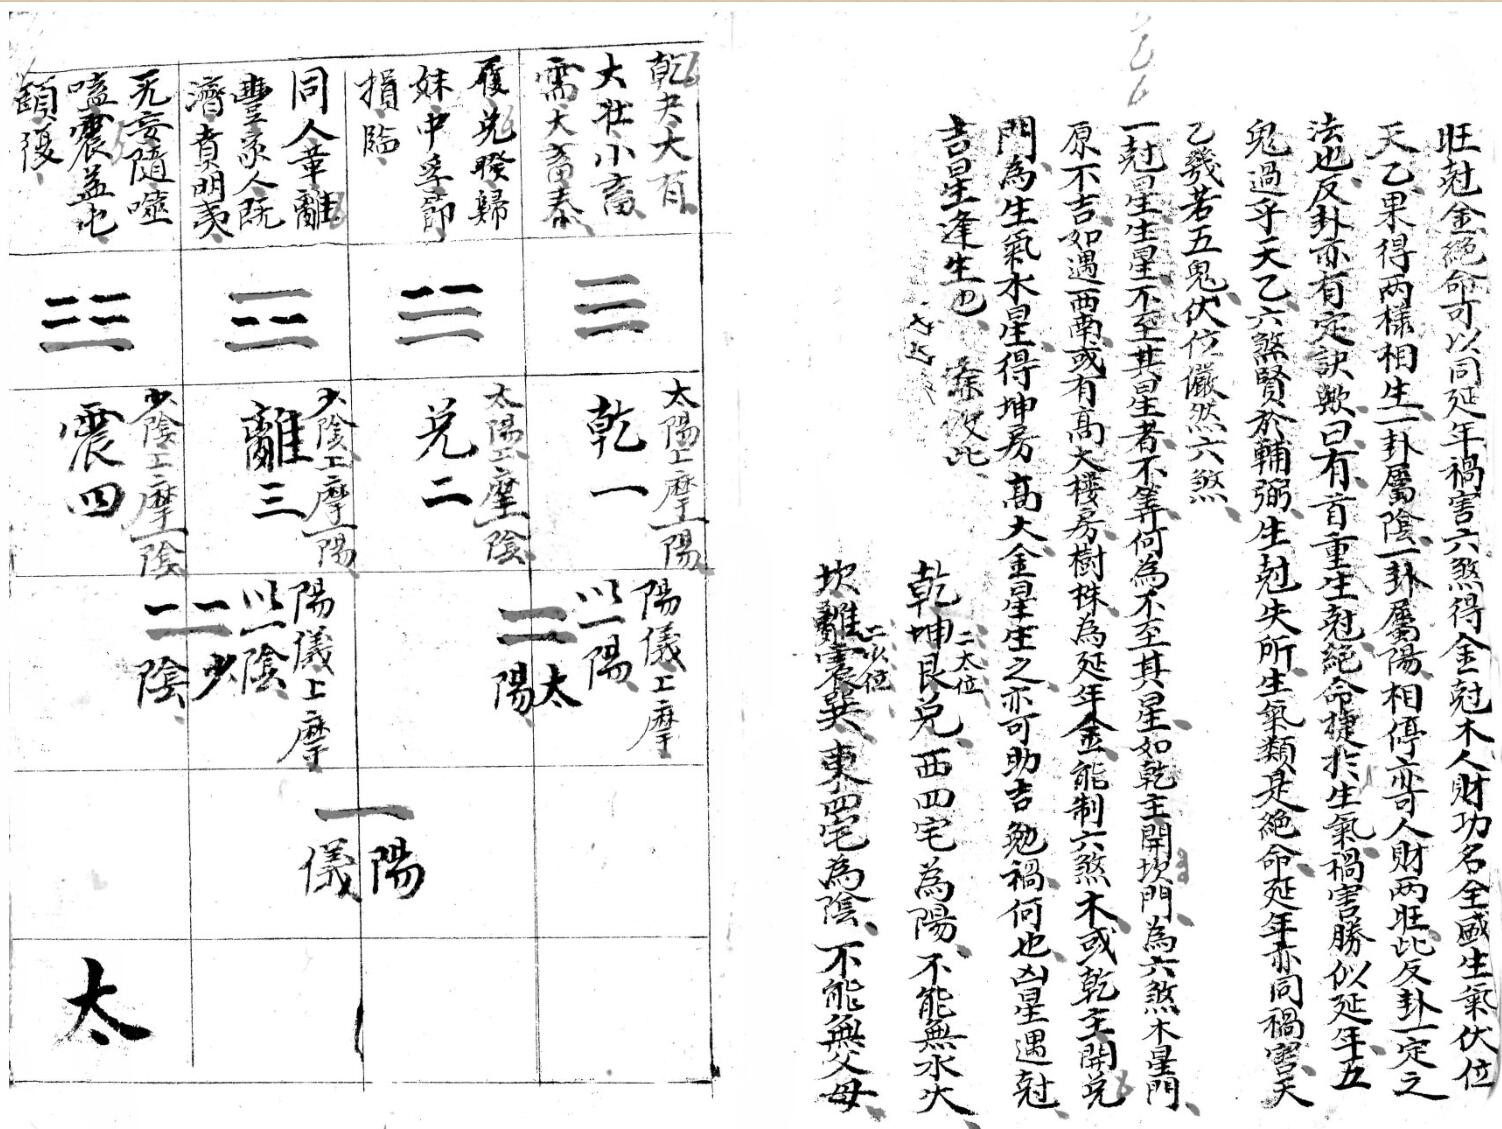 旺尅金絶命可以同延年禍害六煞得金尅木人財功名全盛生氣伏位
天乙果得两樣相生一卦屬陰一卦屬陽相停亦可人財两旺此反卦一定之
法也反卦亦有定訣歟曰有首重生尅絶命捷扵生氣禍害勝似延年五
鬼過乎天乙六煞賢於輔弼生尅失所生氣類是絶命延年亦同禍害天
乙幾若五鬼伏位儼然六煞
一尅星生星不至其星者不等何為不至其星如乾主開坎門為六煞木星門
原不吉如遇西南或有高大樓房樹株為延年金能制六煞木或乾主開兑
門為生氣水星得坤房高大金星生之亦可助吉勉禍何也凶星遇尅
吉星逢生也
乾坤艮兑西四宅為陽不能無水火
二太位
坎離震巽東四宅為陰不能無父母
二少位
乾夬大有
大壮小畜
需大畜泰
履兑睽歸
妹中孚節
損臨
同人革離
豐家人既
濟賁明夷
无妄隨噬
嗑震益屯
頤復
☰
☱
☲
☳
太陽上摩一陽
乾一
太陽上摩一陰
兑二
少陰上摩一陽
離三
少陰上摩一陰
震四
陽儀上摩
以一陽
太
陽
陽儀上摩
以一陰
少
陰
陽
儀
太